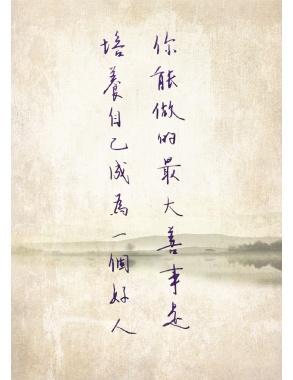 你能做的最大善事是
培養自己成為一個好人